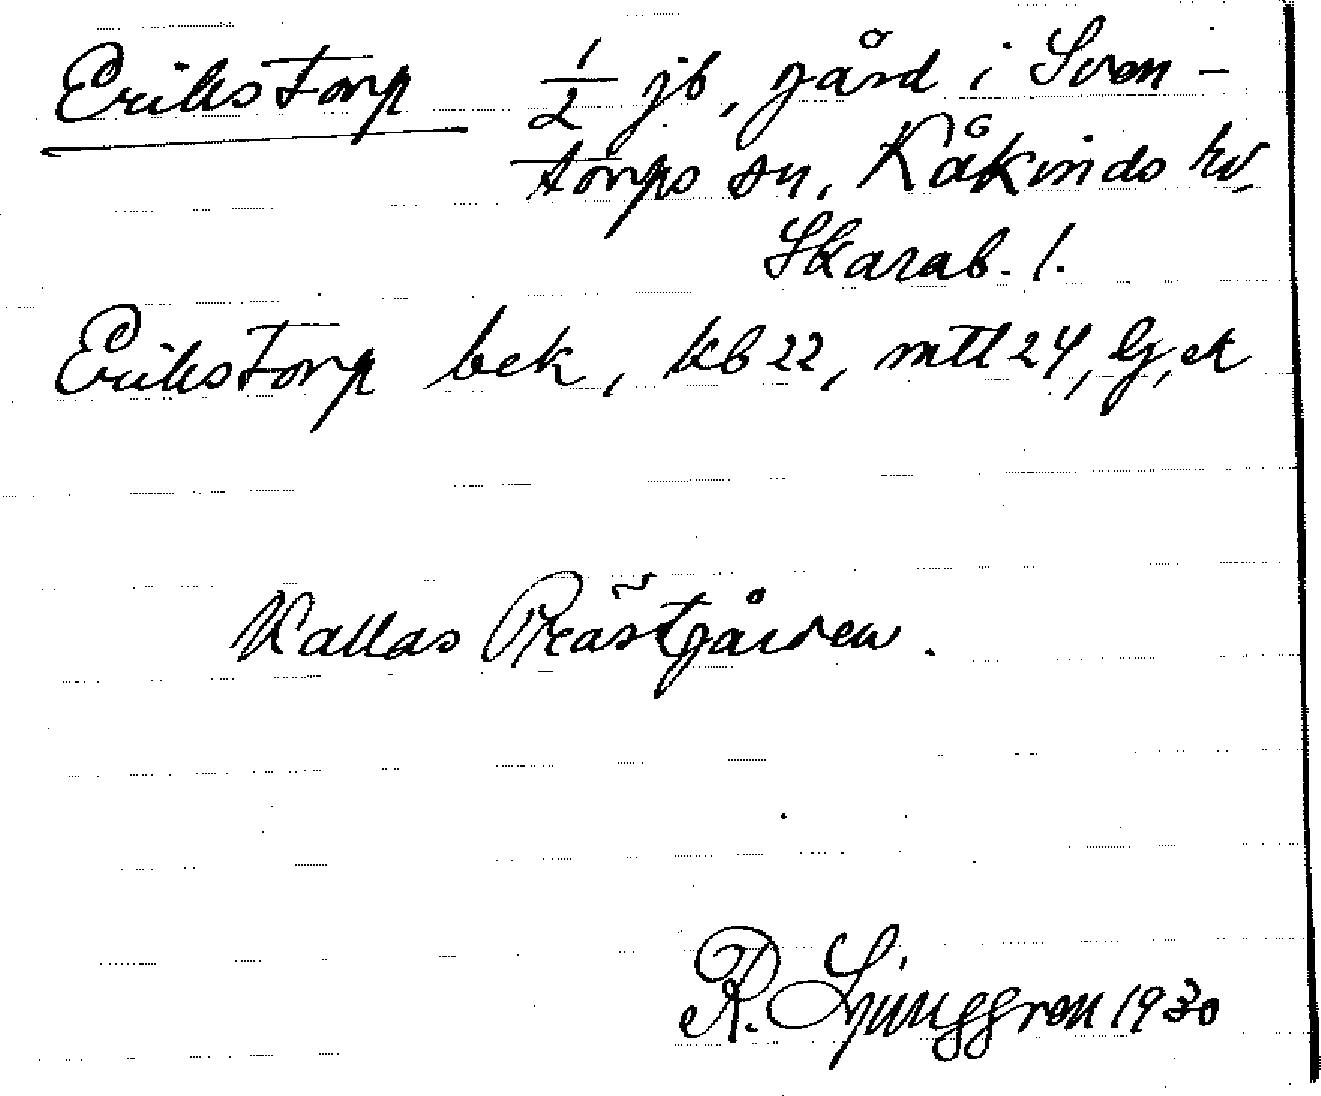 Erikstorp 1/2 jb, gård i Sven-
torps sn, Kåkinds hd,
Skarab. l.
Erikstorp bek, kb 22, mtl 24, G, ek
Kallas Prästgården.
R. Ljunggren 1930